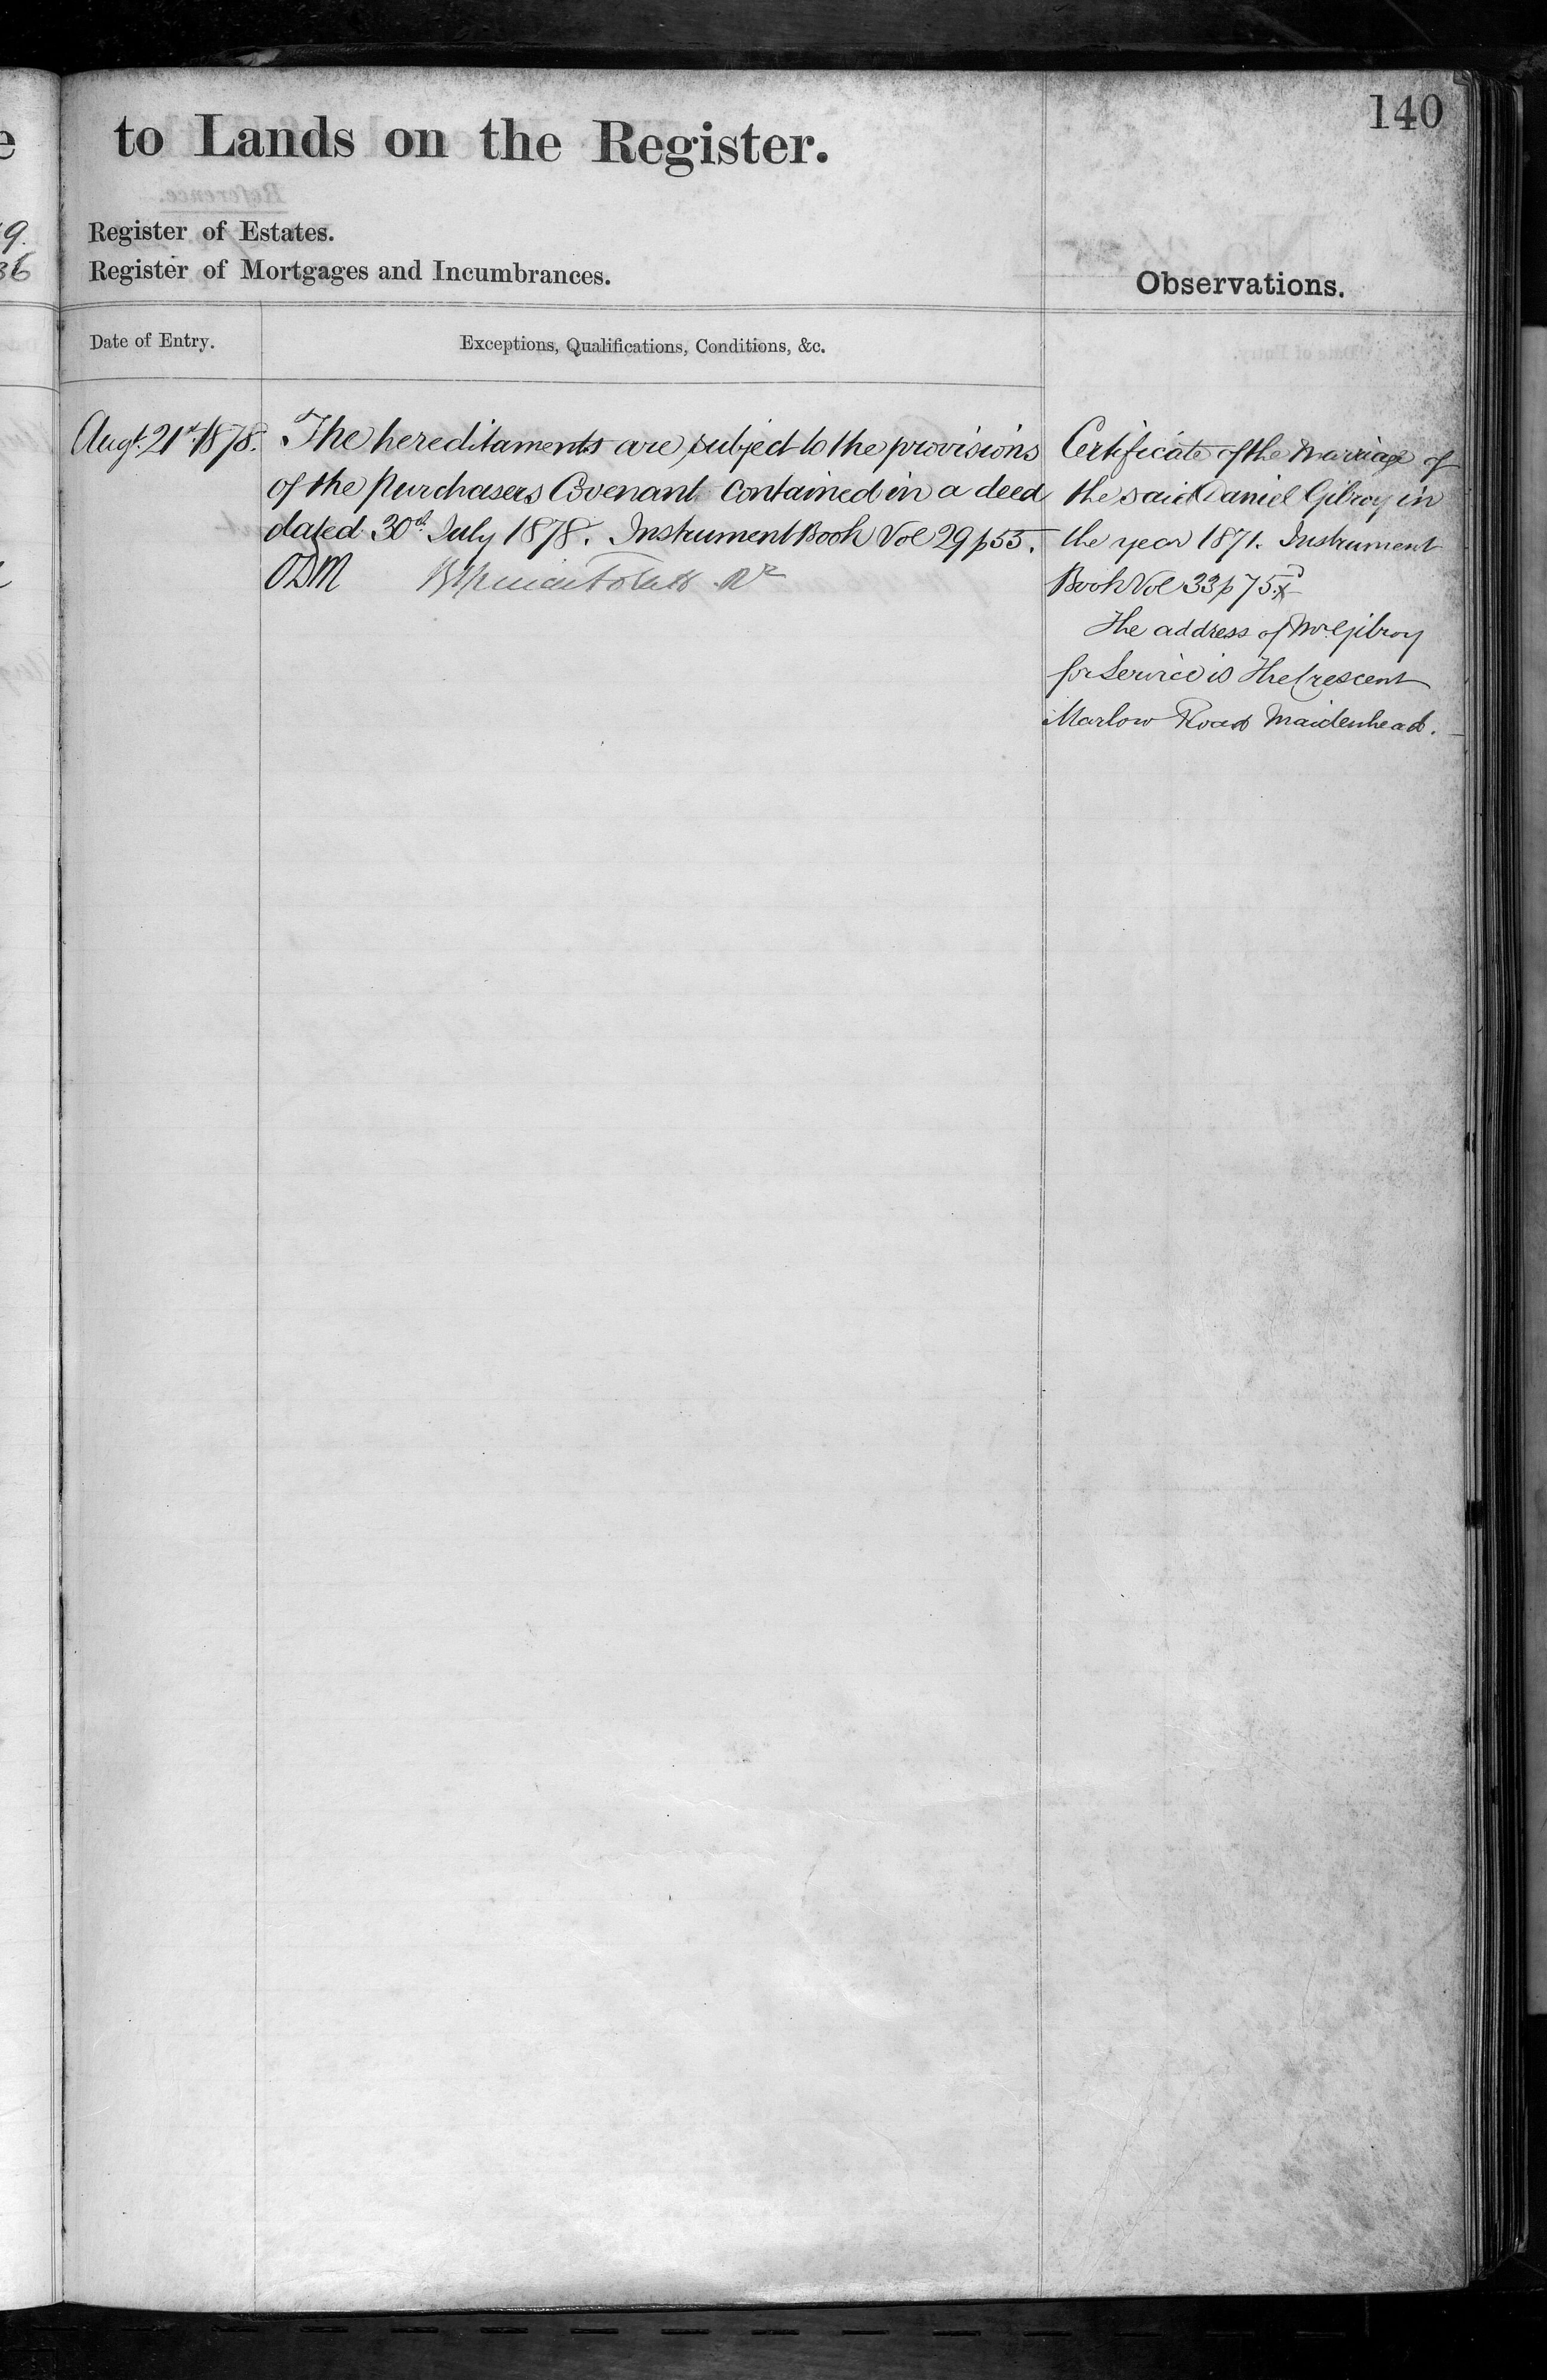 140
to Lands on the Register.
Register of Estates.
Register of Mortgages and Incumbrances.
Observations.
Date of Entry.
Exceptions, Qualifications, Conditions, &c.
Augt. 21st 1878.
The hereditaments are subject to the provisions
of the purchasers Covenant contained in a deed
dated 30th July 1878. Instrument Book Vol 29 p 55.
ODM
Certificate of the Marriage of
the said Daniel Gilroy in
the year 1871. Instrument
Book Vol 33 p 75
The address of Mr. Gilroy
for Service is The Crescent
Marlow Road Maidenhead.